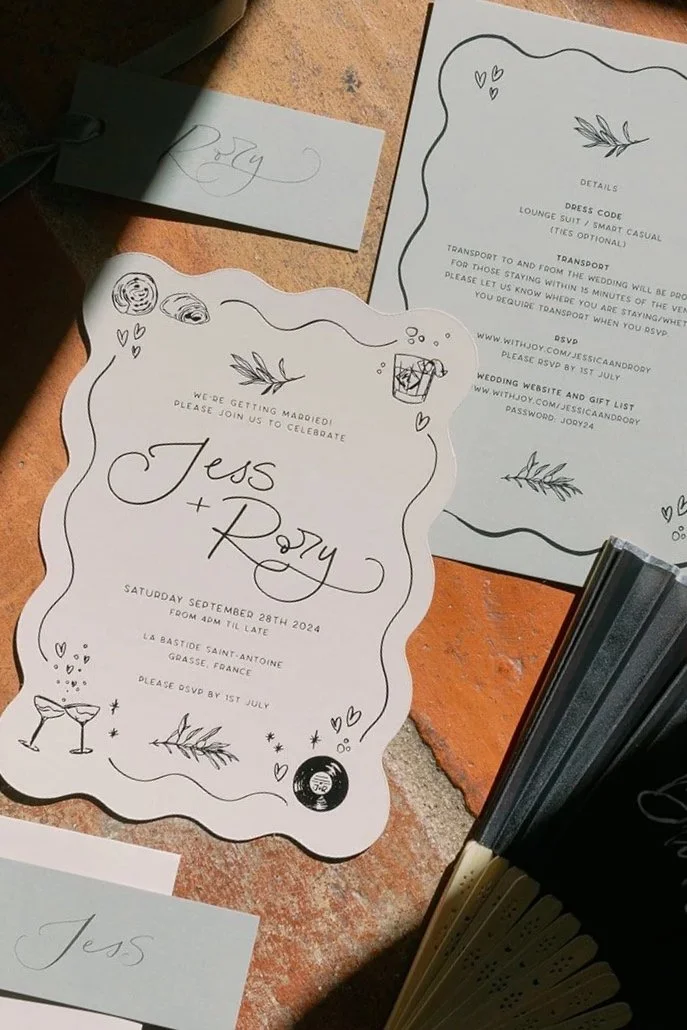 Rory
DETAILS
DRESS CODE
LOUNGE SUIT / SMART CASUAL
(TIES OPTIONAL)
TRANSPORT
TRANSPORT TO AND FROM THE WEDDING WILL BE
FOR THOSE STAYING WITHIN 15 MINUTES OF THE
PLEASE LET US KNOW WHERE YOU ARE
YOU REQUIRE TRANSPORT WHEN YOU RSVP.
RSVP
WWW.WITHJOY.COM/JESSICAANDRORY
PLEASE RSVP BY 1ST JULY
WEDDING WEBSITE AND GIFT LIST
WWW.WITHJOY.COM/JESSICAANDRORY
PASSWORD: JORY24
WE'RE GETTING MARRIED!
PLEASE JOIN US TO CELEBRATE
Jess
+ Rory
SATURDAY SEPTEMBER 28TH 2024
FROM 4PM TIL LATE
LA BASTIDE SAINT-ANTOINE
GRASSE, FRANCE
PLEASE RSVP BY 1ST JULY
Jess